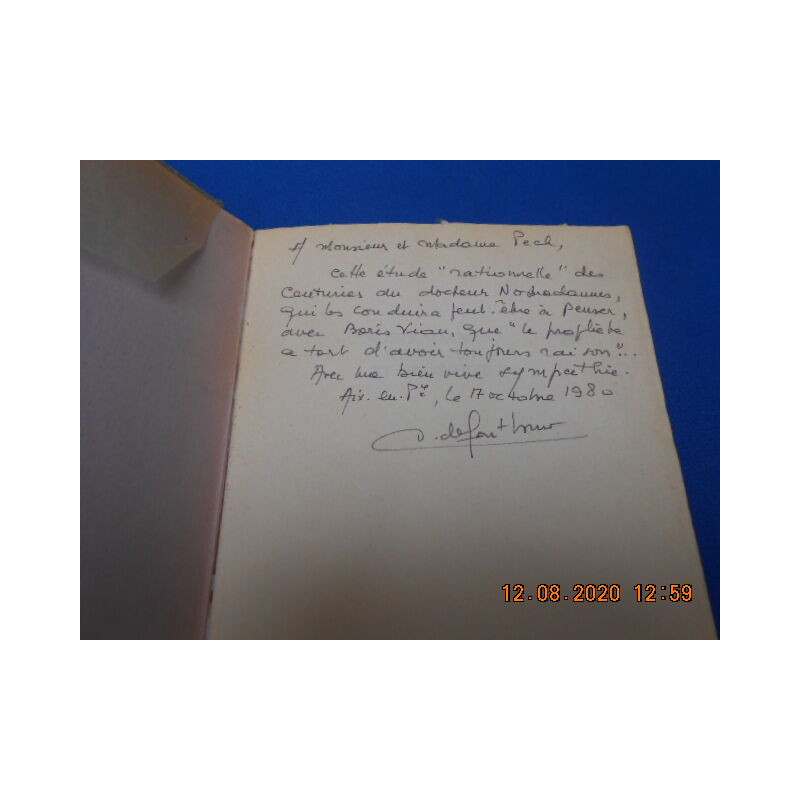 A Monsieur et Madame Pech,
cette étude "rationnelle" des
Centuries du docteur Nostradamus,
qui les conduira peut-être à Penser,
avec Boris Vian, que "le prophète
a tort d'avoir toujours raison"...
Avec une bien vive sympathie.
Aix-en-Pce, le 17 octobre 1980
12.08.2020 12:59